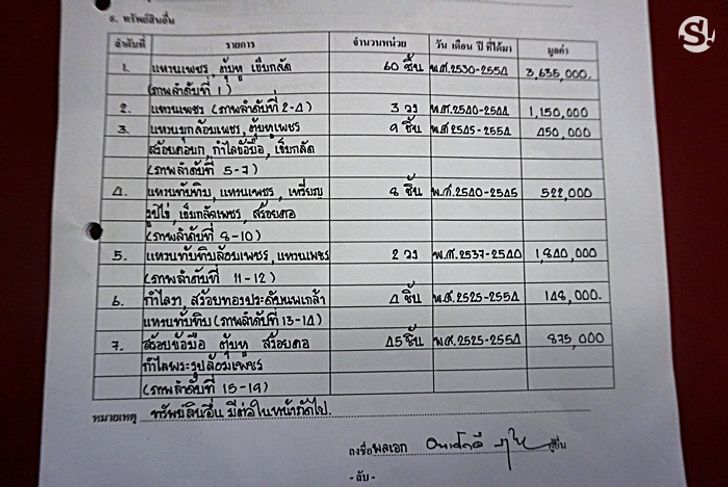 ๕. ทรัพย์สินอื่น
ลำดับที่ รายการ จำนวนหน่วย วัน เดือน ปี ที่ได้มา มูลค่า
1. แหวนเพชร, ตุ้มหู เข็มกลัด 60 ชิ้น พ.ศ.2530-2554 3,635,000.
(ภาพลำดับที่ 1)
2. แหวนเพชร (ภาพลำดับที่ 2-4) 3 วง พ.ศ.2540-2544 1,150,000
3. แหวนมุกล้อมเพชร, ตุ้มหูเพชร 9 ชิ้น พ.ศ.2545-2554 450,000
สร้อยคอมุก, กำไลข้อมือ, เข็มกลัด
(ภาพลำดับที่ 5-7)
4. แหวนทับทิม, แหวนเพชร, เหรียญ 8 ชิ้น พ.ศ.2540-2545 522,000
รูปไข่, เข็มกลัดเพชร, สร้อยคอ
(ภาพลำดับที่ 8-10)
5. แหวนทับทิมล้อมเพชร, แหวนเพชร 2 วง พ.ศ.2537-2540 1,840,000
(ภาพลำดับที่ 11-12)
6. กำไลงา, สร้อยทองประดับนพเก้า 4 ชิ้น พ.ศ.2525-2554 148,000.
แหวนทับทิม (ภาพลำดับที่ 13-14)
7. สร้อยข้อมือ ตุ้มหู สร้อยคอ 45 ชิ้น พ.ศ.2525-2554 875,000
กำไลพระรูปล้อมเพชร
(ภาพลำดับที่ 15-19)
หมายเหตุ ทรัพย์สินอื่น มีต่อในหน้าถัดไป.
ลงชื่อพลเอก ผู้ยื่น
-ลับ-
S